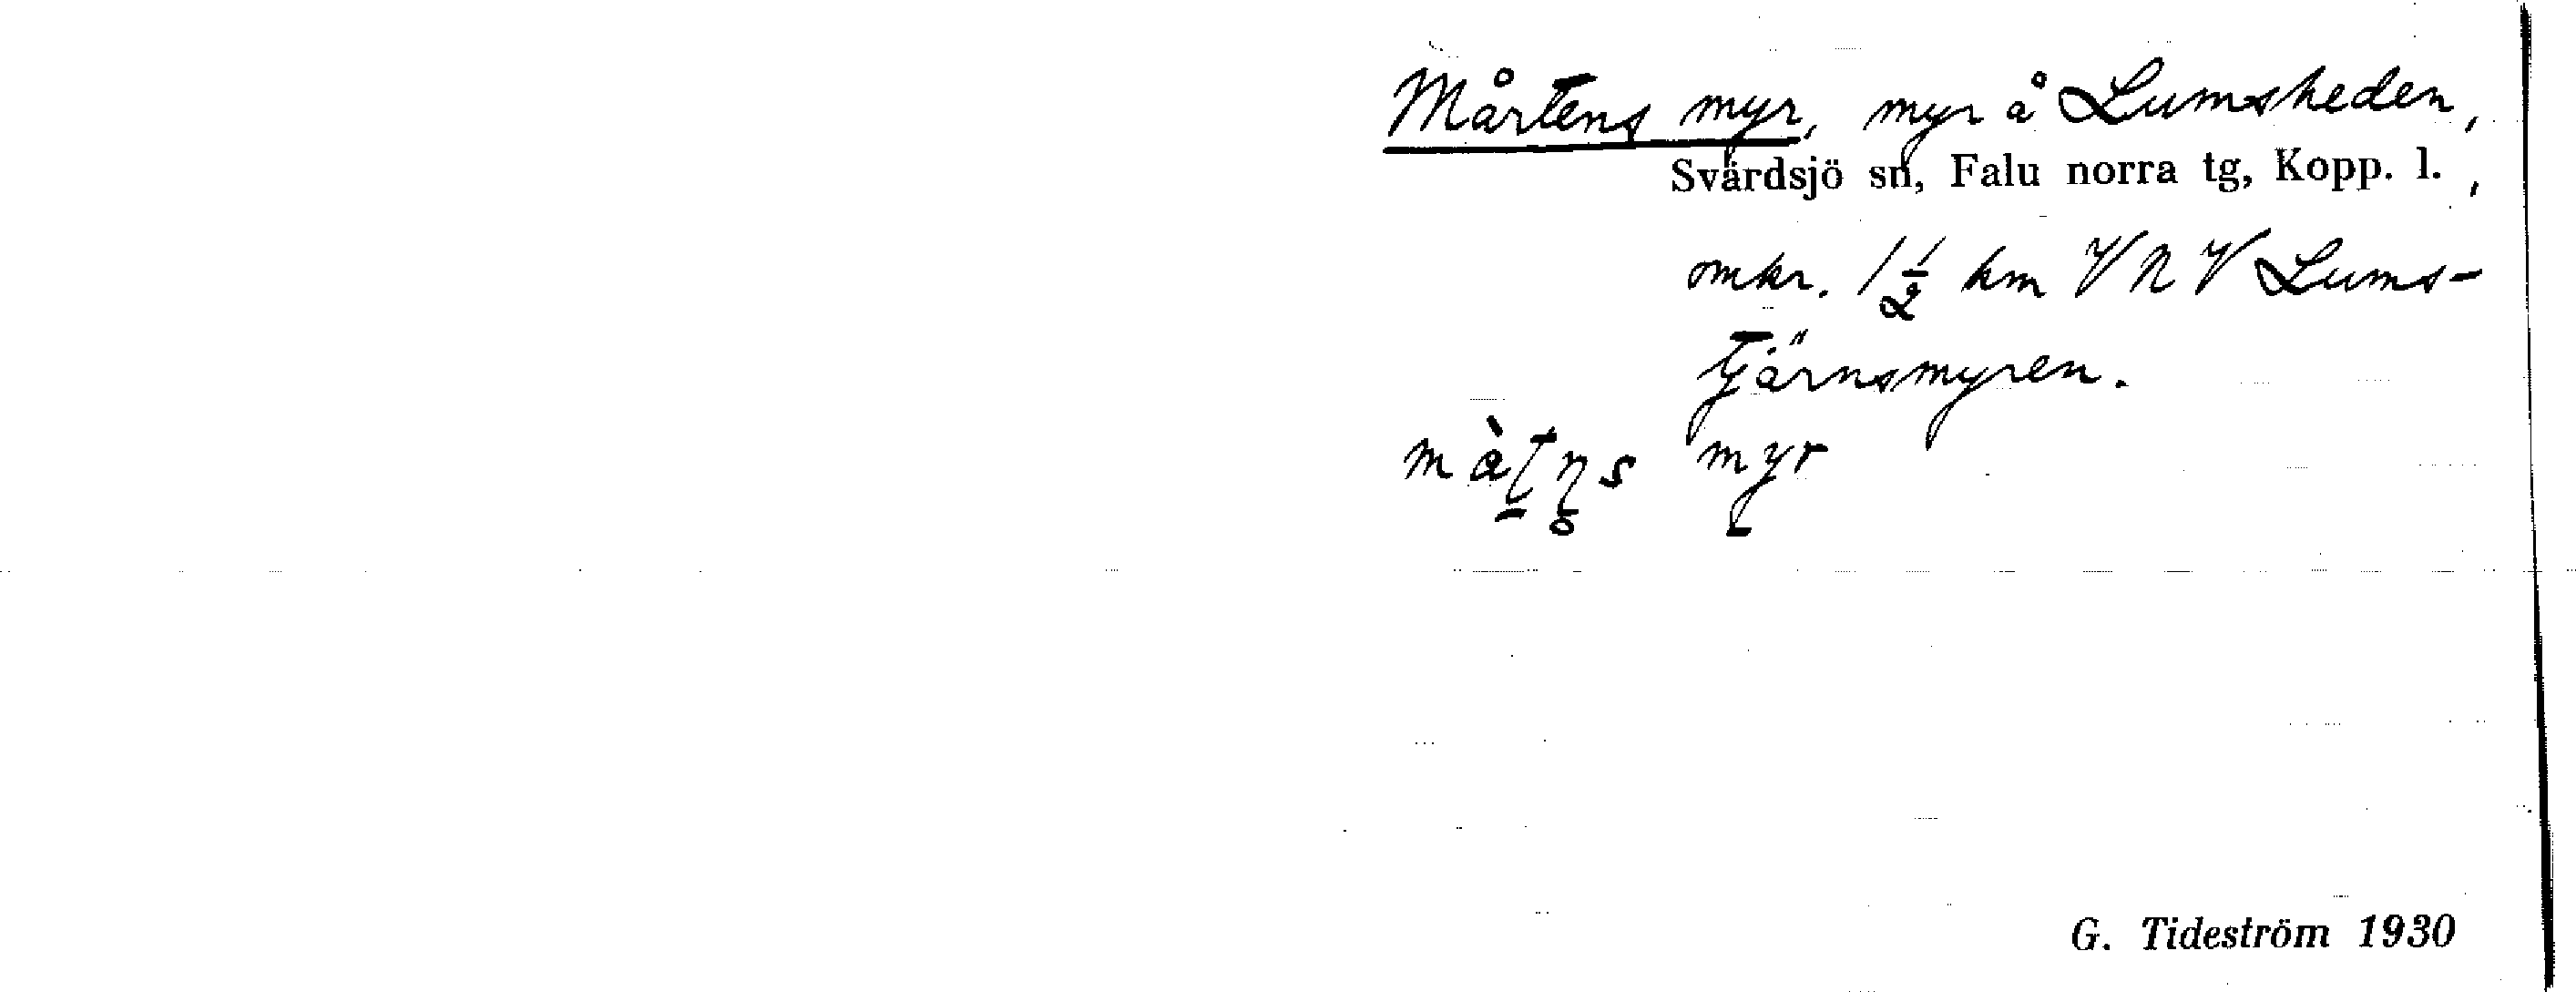 Mårtens myr, myr å Lumsheden,
Svärdsjö sn, Falu norra tg, Kopp. l.,
omkr. 1½ km VNV Lums-
tjärnsmyren.
màʈɳ̥s myr
G. Tideström 1930